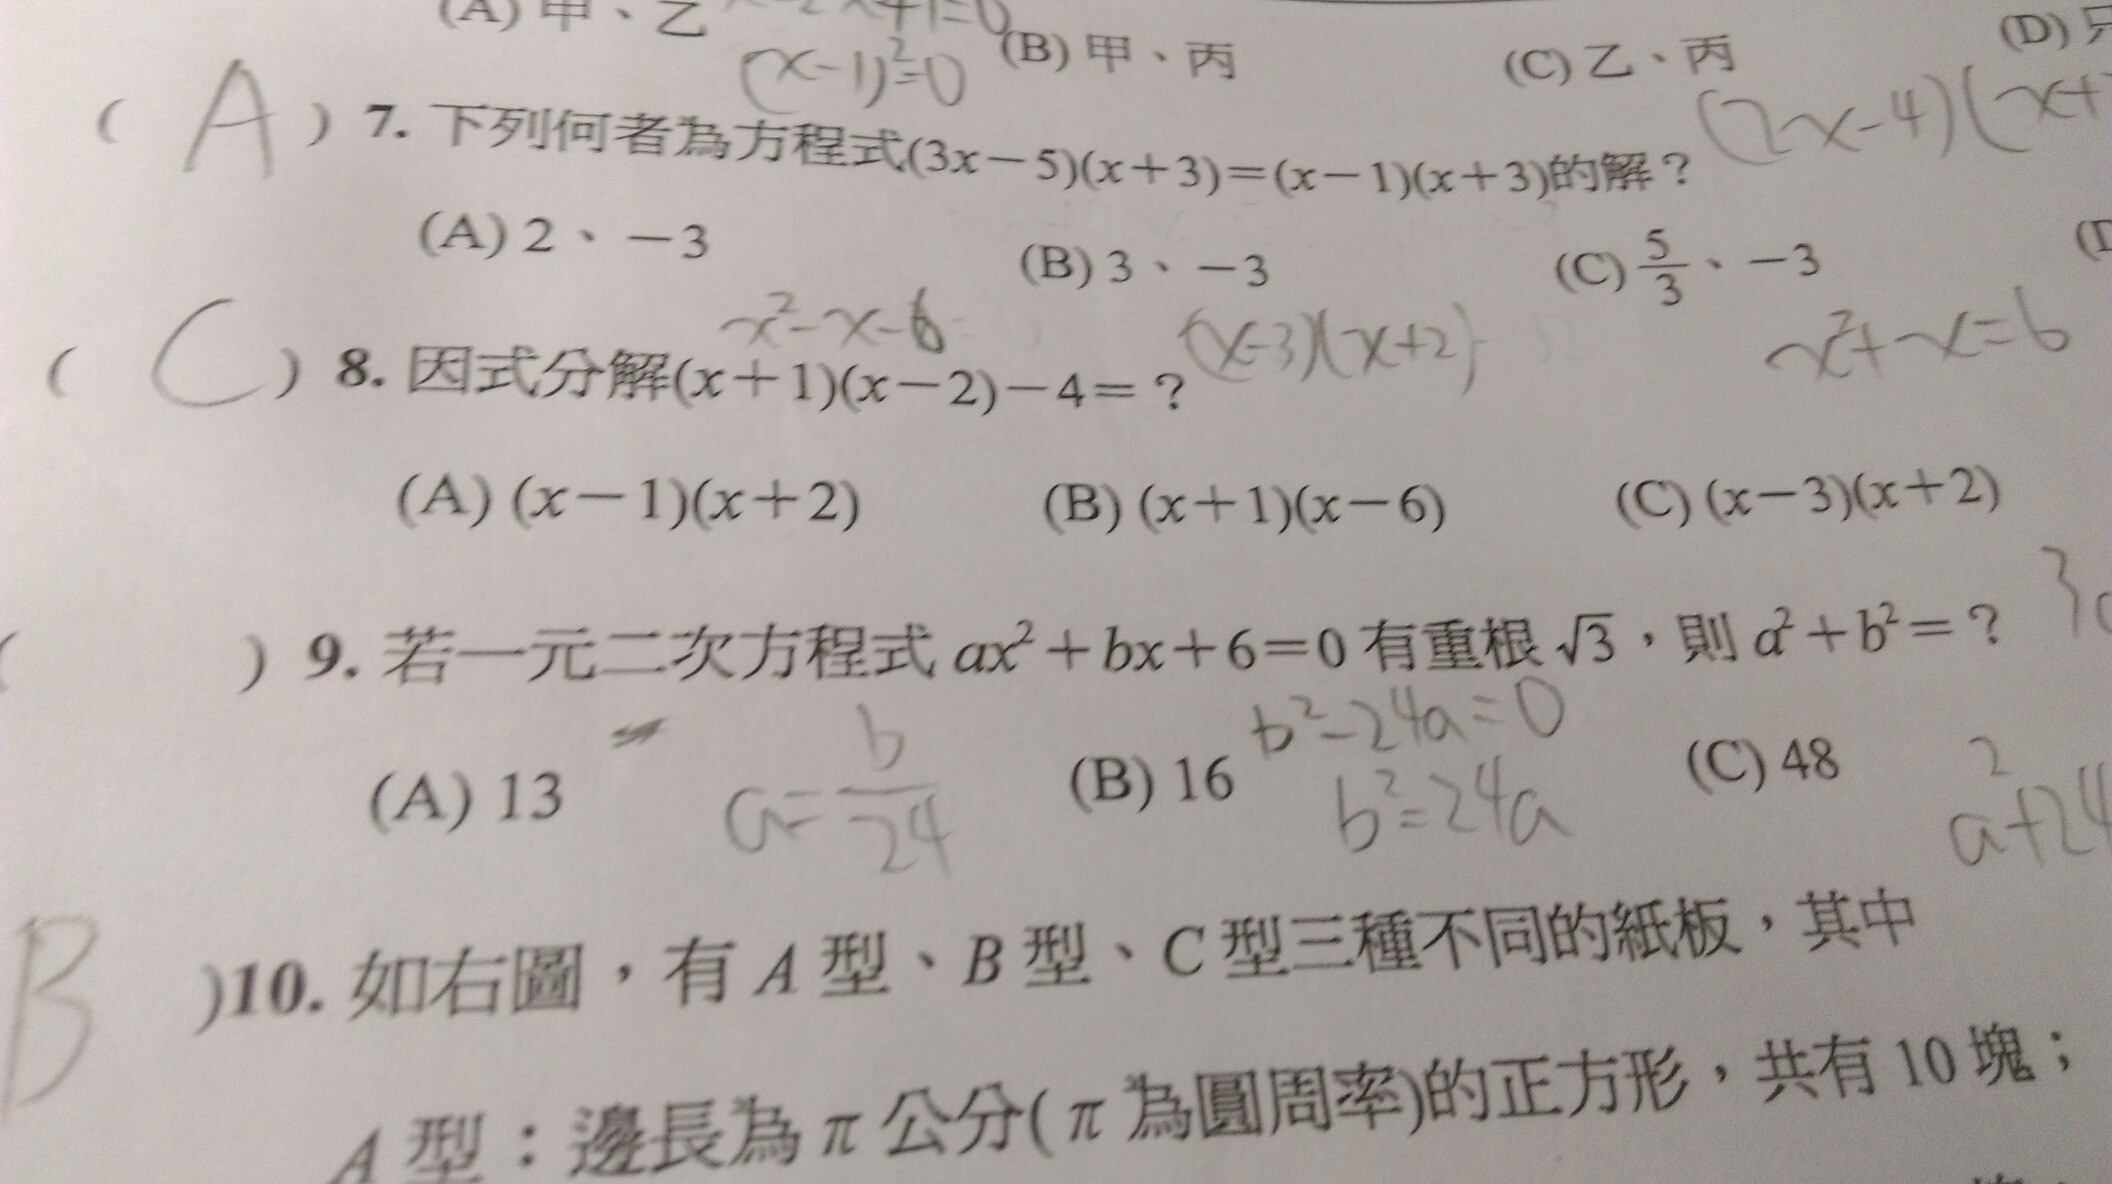 (A) 甲、乙
(B) 甲、丙
(C) 乙、丙
(D) 只
(x-1)²=0
( A ) 7. 下列何者為方程式(3x-5)(x+3)=(x-1)(x+3)的解？
(2x-4)(x+
(A) 2、-3
(B) 3、-3
(C) 5/3、-3
x²-x-6
(x-3)(x+2)
x²+x=6
( C ) 8. 因式分解(x+1)(x-2)-4=？
(A) (x-1)(x+2)
(B) (x+1)(x-6)
(C) (x-3)(x+2)
( ) 9. 若一元二次方程式 ax²+bx+6=0 有重根 √3，則 a²+b²=？
b²-24a=0
(A) 13
a=b/24
(B) 16
b²=24a
(C) 48
a²+24
B )10. 如右圖，有 A 型、B 型、C 型三種不同的紙板，其中
A 型：邊長為 π 公分(π 為圓周率)的正方形，共有 10 塊；